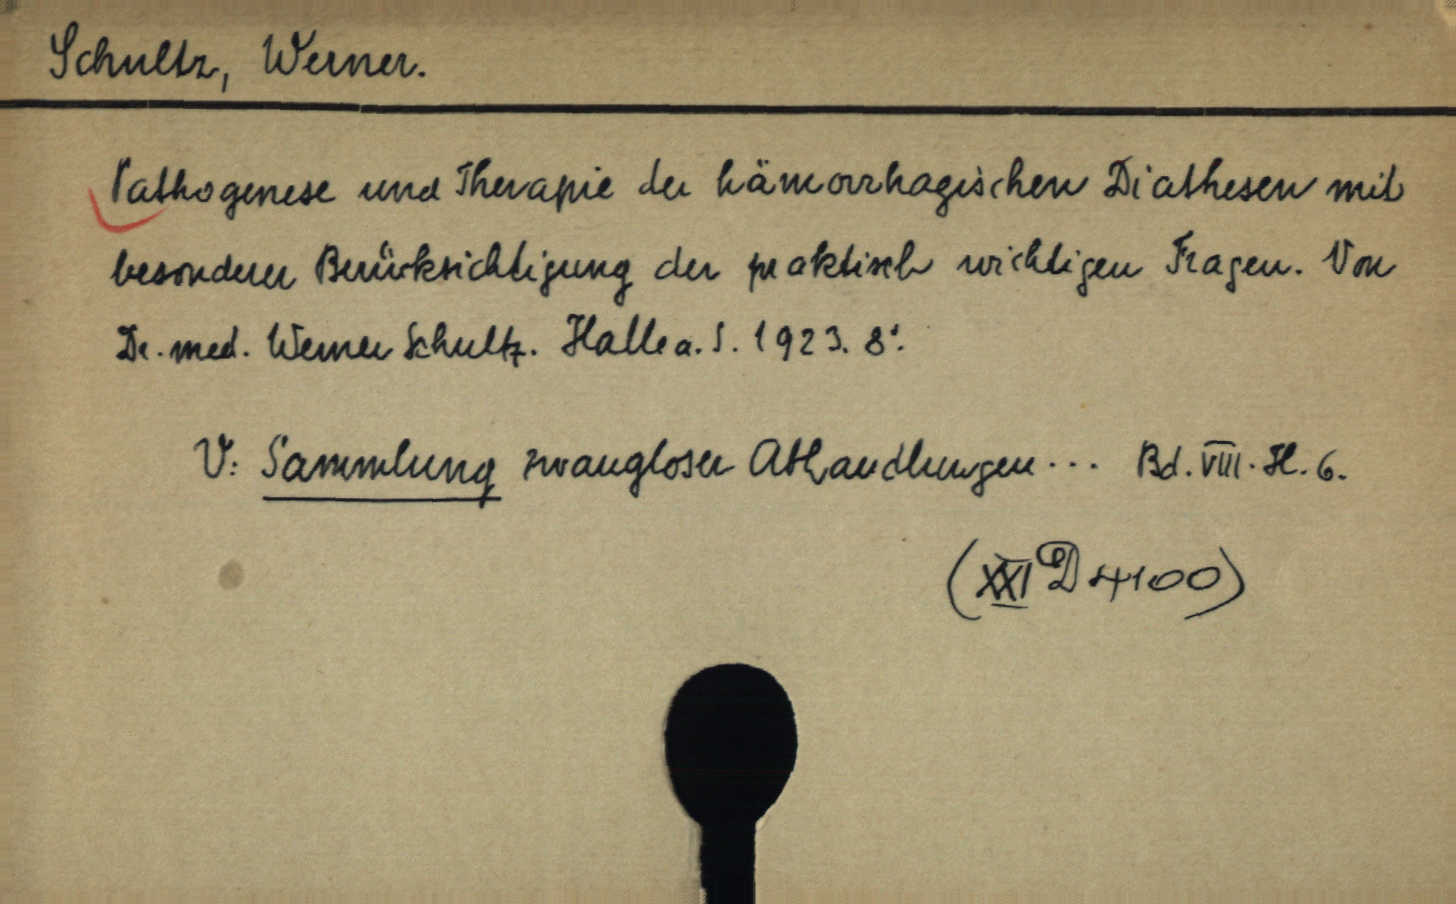 Schultz, Werner.
Pathogenese und Therapie der hämorrhagischen Diathesen mit
besonderer Berücksichtigung der praktisch wichtigen Fragen. Von
Dr. med. Werner Schultz. Halle a. S. 1923. 8°.
V: Sammlung zwangloser Abhandlungen ... Bd. VIII. H. 6.
(XXI D 4100)